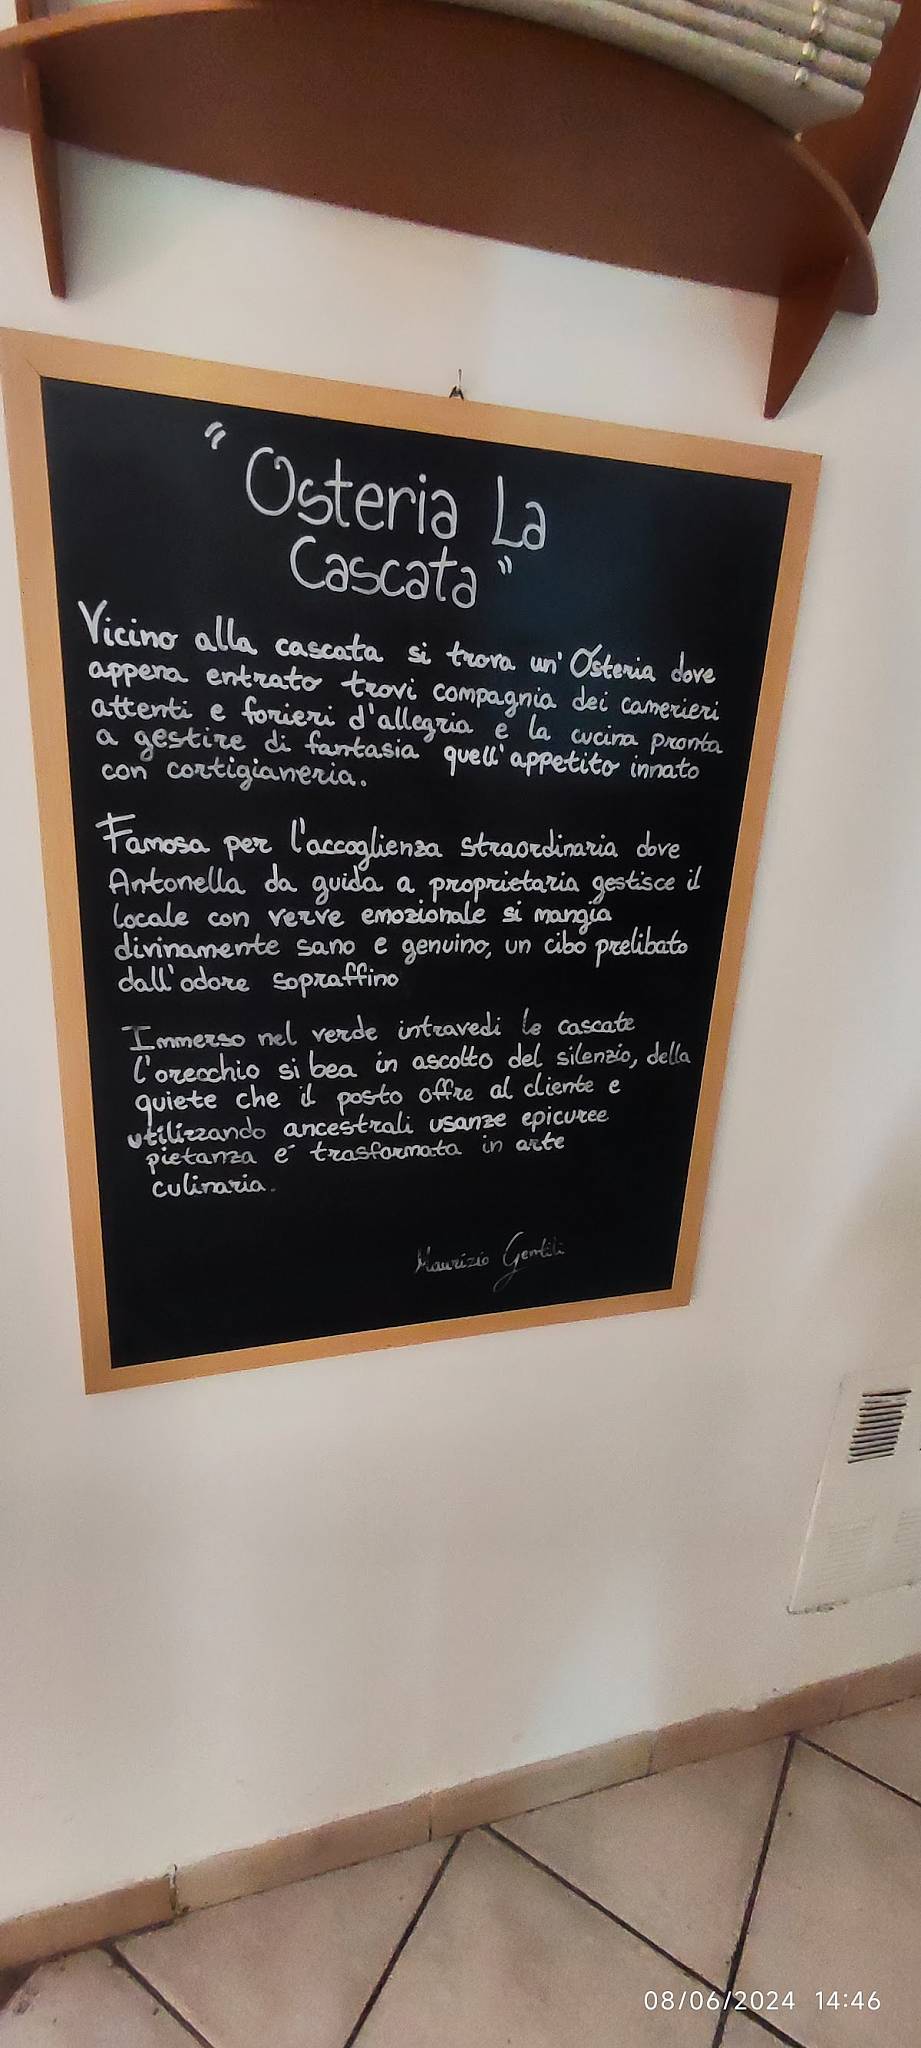 "Osteria La
Cascata"
Vicino alla cascata si trova un'Osteria dove
appena entrato trovi compagnia dei camerieri
attenti e forieri d'allegria e la cucina pronta
a gestire di fantasia quell'appetito innato
con cortigianeria.
Famosa per l'accoglienza straordinaria dove
Antonella da guida a proprietaria gestisce il
locale con verve emozionale si mangia
divinamente sano e genuino, un cibo prelibato
dall'odore sopraffino
Immerso nel verde intravedi le cascate
l'orecchio si bea in ascolto del silenzio, della
quiete che il posto offre al cliente e
utilizzando ancestrali usanze epicuree
pietanza e' trasformata in arte
culinaria.
Maurizio Gentili
08/06/2024 14:46